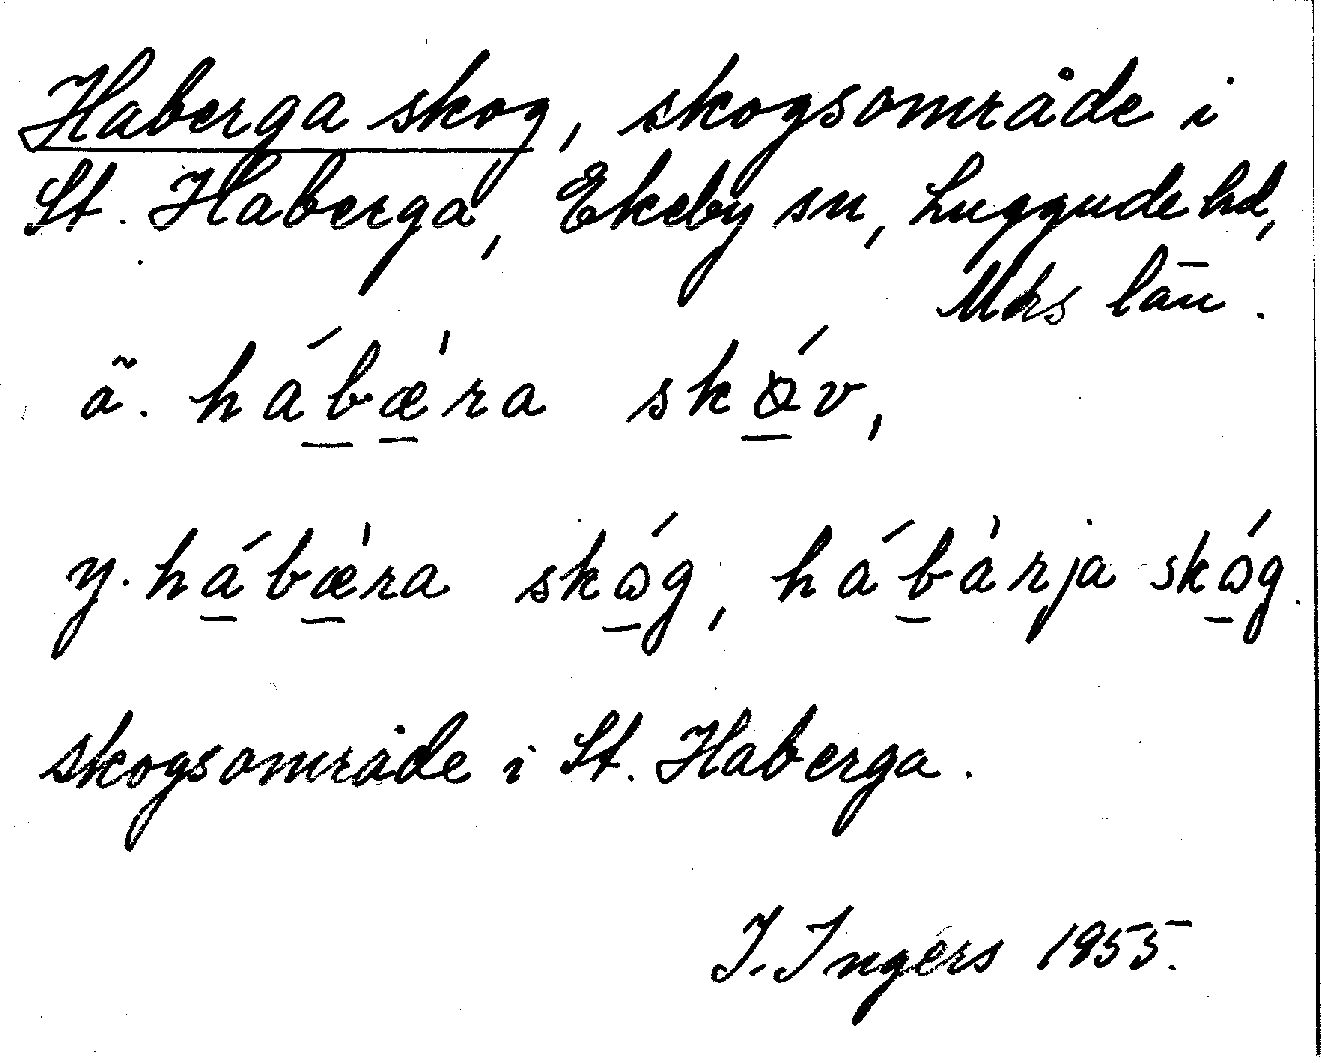 Haberga skog, skogsområde i
St. Haberga, Ekeby sn, Luggude hd,
Mhs län.
ä. hábæ̀ra skǿv,
y. hábæ̀ra skóg, hábàrja skóg.
skogsområde i St. Haberga.
I. Ingers 1955.